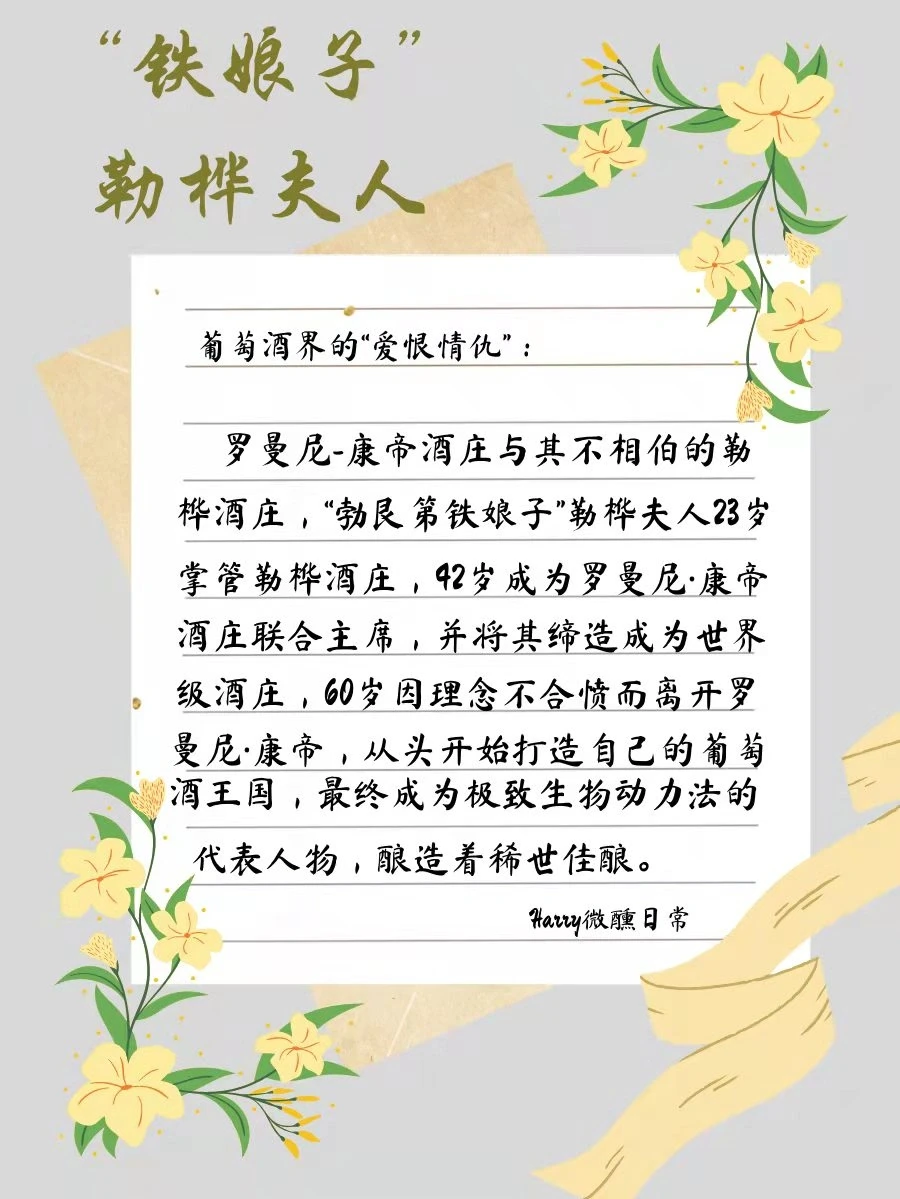 “铁娘子”
勒桦夫人
葡萄酒界的“爱恨情仇”：
罗曼尼-康帝酒庄与其不相伯的勒
桦酒庄，“勃艮第铁娘子”勒桦夫人23岁
掌管勒桦酒庄，42岁成为罗曼尼·康帝
酒庄联合主席，并将其缔造成为世界
级酒庄，60岁因理念不合愤而离开罗
曼尼·康帝，从头开始打造自己的葡萄
酒王国，最终成为极致生物动力法的
代表人物，酿造着稀世佳酿。
Harry微醺日常